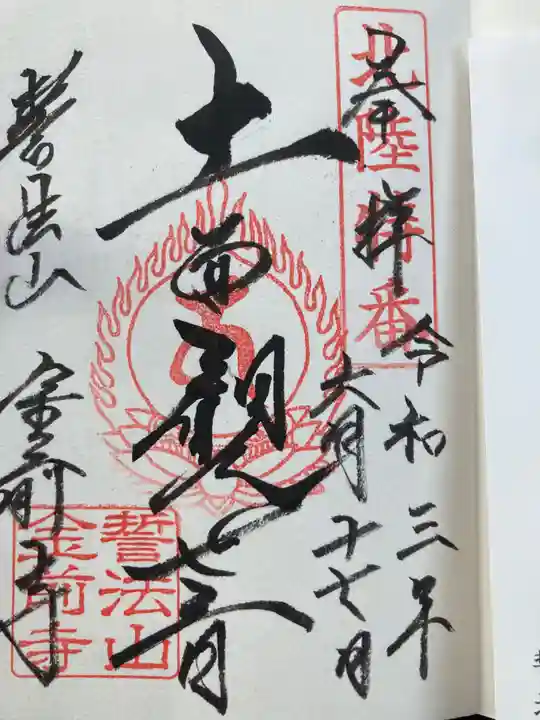 北陸特番
奉拝
令和三年
六月二十七日
十一面観世音
誓法山
金前寺
誓法山
金前寺